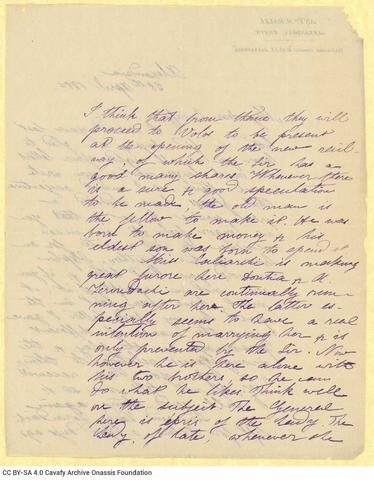 I think that from thence they will
proceed to Volos to be present
at the opening of the new rail-
way, of which the Sir has a
good many shares. Whenever there
is a sure & good speculation
to be made, the old man is
the fellow to make it. He was
born to make money & his
eldest son was born to spend it.
Miss is making
great furore here &
are continually run-
ning after her. The latter es-
pecially seems to have a real
intention of marrying her & is
only prevented by the Sir. Now
however he is here alone with
his two brothers, so he can
do what he likes. Think well
on the subject. The General
here is épris of the Lady. The
Lady, of late, whenever she
CC BY-SA 4.0 Cavafy Archive Onassis Foundation